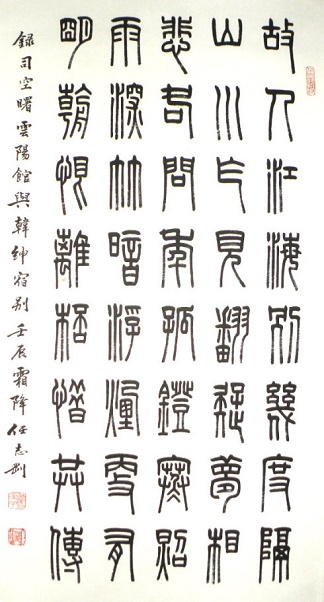 故人江海別幾度隔
山川乍見翻疑夢相
悲各問年孤鐙寒照
雨深竹暗浮煙更有
明朝恨離桮惜共傳
録司空曙雲陽館與韓紳宿别壬辰霜降任志剛